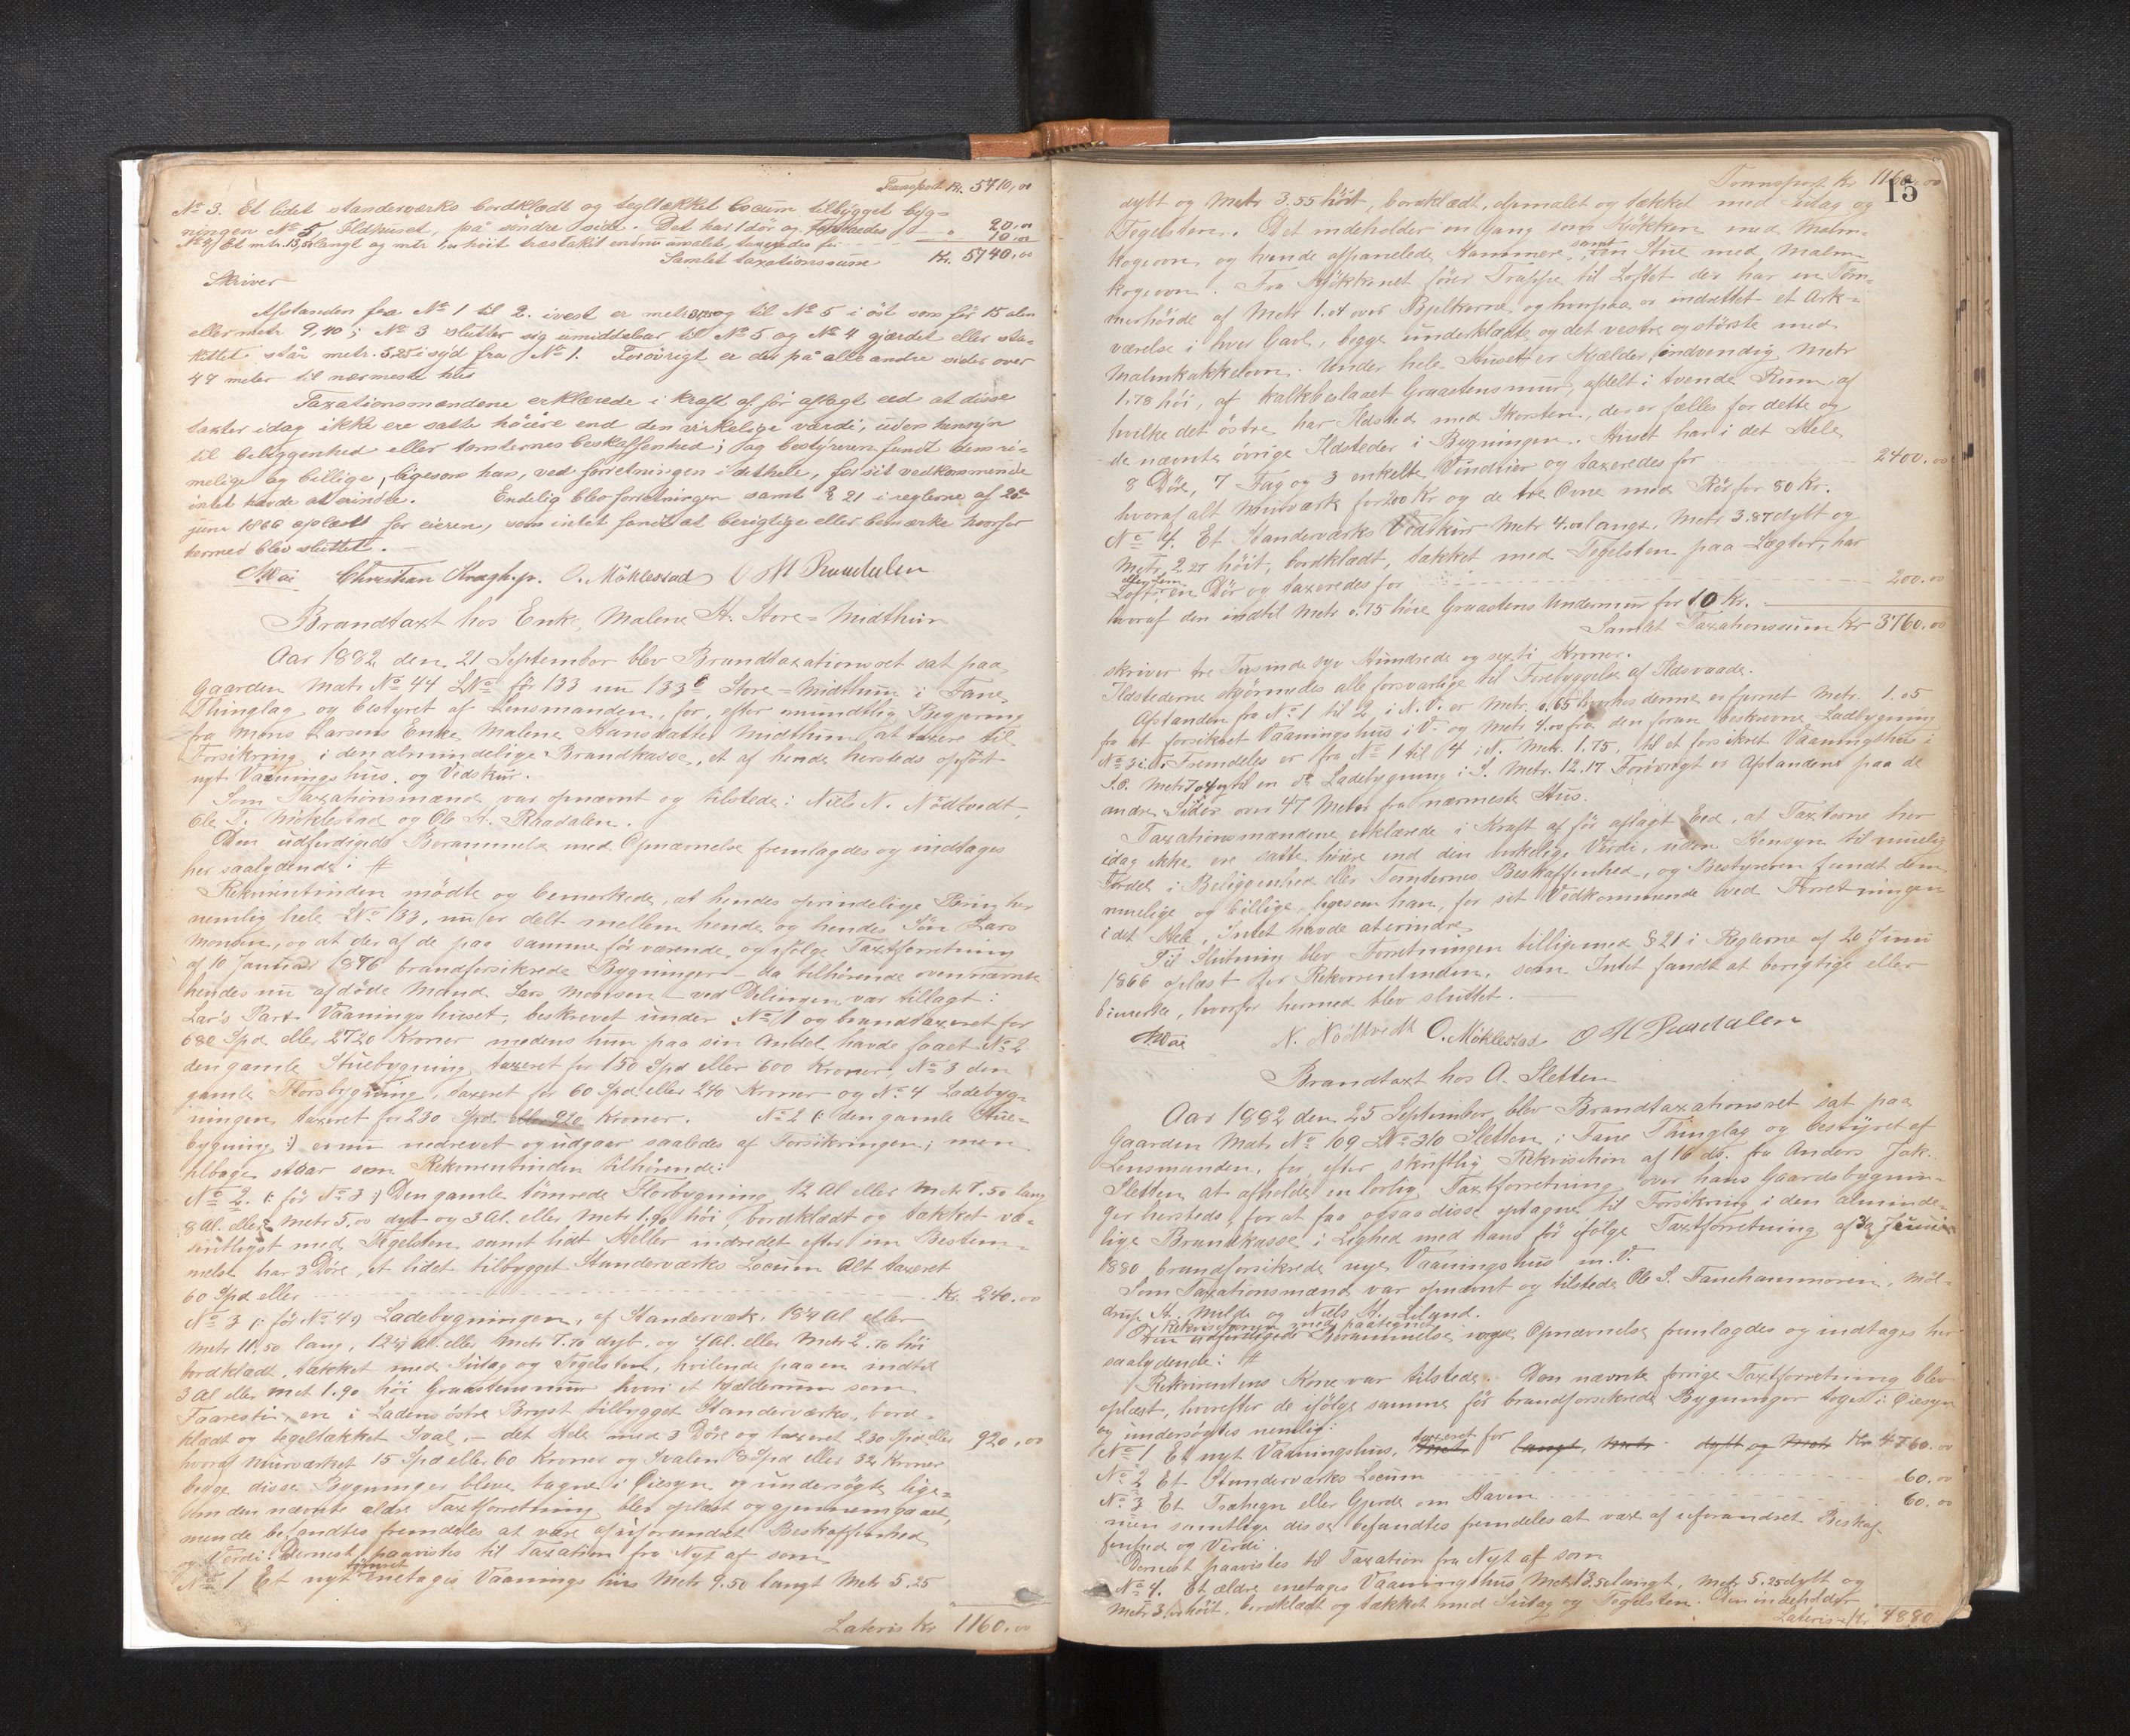 Transport Kr. 5710,00
No 3. Et lidet standerværks bordklædt og tegltækket locum tilbygget byg-
ningen No 5, Ildhuset, på søndre side. Det har 1 dør og taxeredes f " 20,00
No 4/ Et mtr. 13,50 langt og mtr høit træstakit endnu umalet, taxeredes for 10,00
Samlet taxationssum Kr. 5740,00
Skriver
Afstanden fra No 1 til 2. ivest er metr og til No 5 i øst som før 15 alen
eller metr 9,40; No 3 slutter sig umiddelbar til No 5 og No 4 gjærdet eller sta-
kittet står metr. 5.25 i syd fra No 1. Forøvrigt er der på alle andre sider over
47 meter til nærmeste hus
Taxationsmændene erklærede i kraft af før aflagt eed at disse
taxter idag ikke ere satte høiere end den virkelige værdi, uden hensyn
til beliggenhed eller tomternes beskaffenhed; og bestyreren fandt dem ri-
melige og billige, ligesom han, ved forretningen i dethele, for sit vedkommende
intet havde at erindre. Endelig blev forretningen samt § 21 i reglerne af 20de
juni 1866 oplæst for eieren, som intet fandt at berigtige eller bemærke hvorfor
hermed blev sluttet.
Christian Kragh jr. O. Möklestad O H Raadalen
Brandtaxt hos Enke, Malene H. Store-Midthun
Aar 1882 den 21 September blev Brandtaxationsret sat paa
Gaarden Matr No 44 LNo før 133 nu 133b Store-Midthun i Fane
Thinglag og bestyret af Lensmanden, for, efter mundtlig Begjæring
fra Mons Larsens Enke Malene Hansdatter Midthun, at taxere til
Forsikring i den almindelige Brandkasse, et af hende hersteds opført
nyt Vaaningshus og Vedskur.
Som Taxationsmænd var opnævnt og tilstede: Niels N. Nödtvedt,
Ole T. Möklestad og Ole H. Raadalen.
Den udferdigede Berammelse med Opnævnelse fremlagdes og indtages
her saalydende: #
Rekvirentinden mødte og bemerkede, at hendes oprindelige Brug her
nemlig hele LNo 133, nu er delt mellem hende og hendes Søn Lars
Monsen, og at der af de paa samme før værende og ifølge Taxtforretning
af 10 Januar 1876 brandforsikrede Bygninger - da tilhørende ovennævnte
hendes nu afdøde Mand Lars Monsen - ved Delingen var tillagt:
Lars's Part Vaaningshuset, beskrevet under No 1 og brandtaxeret for
680 Spd eller 2720 Kroner medens hun paa sin Andel havde faaet No 2
den gamle Stuebygning taxeret for 150 Spd eller 600 Kroner, No 3 den
gamle Storbygning, taxeret for 60 Spd eller 240 Kroner og No 4 Ladebyg-
ningen taxeret for 230 Spd eller 920 Kroner. No 2 (: den gamle Stue-
bygning :) er nu nedrevet og udgaar saaledes af Forsikringen; men
tilbage staar som Rekvirentinden tilhørende:
No 2. (: før No 3 :) Den gamle tømrede Storbygning 12 Al eller Metr 7.50 lang
8 Al. eller Metr 5.00 dyb og 3 Al. eller Metr 1.90 høi, bordklædt og takket væ-
sentligst med Tegelsten samt lidt Heller indredet efter sin Bestem-
melse har 3 Døre, et lidet tilbygget Standerværks Locum Alt taxeret
60 Spd eller Kr. 240.00
No 3 (: før No 4 :) Ladebygningen, af Standerværk, 18¼ Al eller
Metr 11.50 lang, 12¼ Al. eller Metr 7.70 dyb, og 4 Al. eller Metr 2.70 høi
bordklædt, takket med Sutag og Tegelsten, hvilende paa en indtil
3 Al eller Met 1.90 høi Graastensmur hvori et Kjælderrum som
Faaresti, en i Ladens østre Bryst tilbygget Standerværks, bord-
klædt og tegeltakket Sval, - det Hele med 3 Døre og taxeret 230 Spd eller 920,00
hvoraf Murværket 15 Spd eller 60 Kroner og Svalen 8 Spd eller 32 Kroner
begge disse Bygninger bleve tagne i Øiesyn og undersøgte lige-
som den nævnte ældre Taxtforretning blev oplæst og gjennemgaaet,
men de befandtes fremdeles at være af uforandret Beskaffenhed
og Verdi. Dernest paavistes til Taxation fra Nyt af som
No 1 Et nyt tømret enetages Vaaningshus Metr 9.50 langt Metr 5.25
Lateris Kr 1160.00
Transport Kr 1160,00
15
dybt og Metr 3.55 høit, bordklædt, opmalet og takket med Sutag og
Tegelsten. Det indeholder en Gang som Kjøkken med Malm-
kogeovn og tvende afpanelede Kammere, samt en Stue med Malm-
kogeovn. Fra Kjøkkenet fører Trappe til Loftet der har en Töm-
merhøide af Metr 1.04 over Bjelkerne og hvorpaa er indrettet et Ark-
værelse i hver Gavl, begge underklædte og det vestre og største med
Malmkakkelovn. Under hele Huset er Kjælder, indvendig Metr
1.78 høi, af kalkbeslaaet Graastensmur, afdelt i tvende Rum, af
hvilke det østre har Ildsted med Skorsten, der er fælles for dette og
de nævnte øvrige Ildsteder i Bygningen. Huset har i det Hele
8 Døre, 7 Fag og 3 enkelte Vinduer og taxeredes for 2400.00
hvoraf alt Murværk for 200 Kr og de tre Ovne med Rör for 80 Kr.
No 4. Et Standerværks Vedskur Metr 4.00 langt, Metr 3.87 dybt og
Metr 2.27 høit, bordklædt, takket med Tegelsten paa Lægter, har
Loft, en Dör og taxeredes for 200.00
hvoraf den indtil Metr 0.75 høie Graastens Undermur for 10 Kr.
Samlet Taxationssum Kr 3760.00
skriver tre Tusinde syv Hundrede og sexti Kroner.
Ildstederne skjønnedes alle forsvarlige til Forebyggelse af Ildsvaade.
Afstanden fra No 1 til 2 i N.V. er Metr. 0.65 hvorhos denne er fjernet Metr. 1.05
fra et forsikret Vaaningshus i V. og Metr 4.00 fra den foran beskrevne Ladbygning
No 3 Fremdeles er fra No 1 til 4 i N. Metr. 1.75, til et forsikret Vaaningshus i
S.Ø. Metr 7.04 og til en do Ladebygning i S. Metr. 12.17 Forøvrigt er Afstanden paa de
andre Sider over 47 Meter fra nærmeste Hus.
Taxationsmændene erklærede i Kraft af før aflagt Eed, at Taxterne her
idag ikke ere satte høiere end den virkelige Verdi, uden Hensyn til muelig
Fordel i Beliggenhed eller Tomternes Beskaffenhed, og Bestyreren fandt dem
rimelige og billige, ligesom han, for sit Vedkommende ved Forretningen
i det Hele, Intet havde at erindre.
Til Slutning blev Forretningen tilligemed § 21 i Reglerne af 20 Juni
1866 oplæst for Rekvirentinden, som Intet fandt at berigtige eller
bemerke, hvorfor hermed blev sluttet.
N. Nödtvedt O. Möklestad O H Raadalen
Brandtaxt hos A. Sletten
Aar 1882 den 25 September blev Brandtaxationsret sat paa
Gaarden Matr No 109 LNo 310 Sletten i Fane Thinglag og bestyret af
Lensmanden, for, efter skriftlig Rekvisition af 16 ds. fra Anders Jak.
Sletten at afholde en lovlig Taxtforretning over hans Gaardsbygnin-
ger hersteds, for at faa ogsaa disse optagne til Forsikring i den alminde-
lige Brandkasse i Lighed med hans før ifølge Taxtforretning af Juni
1880 brandforsikrede nye Vaaningshus m.V.
Som Taxationsmænd var opnævnt og tilstede Ole S. Fanehammeren, Möl-
drup H. Milde og Niels H. Liland.
Rekvisitionen med paategnet
Den udferdigede Berammelse Opnævnelse fremlagdes og indtages her
saalydende: #
Rekvirentens Kone var tilstede. Den nævnte forrige Taxtforretning blev
oplæst, hvorefter de ifølge samme før brandforsikrede Bygninger toges i Øiesyn
og undersøgtes nemlig:
No 1 Et nyt Vaaningshus, taxeret for langt, Metr dybt og Metr Kr 4760.00
No 2 Et Standerværks Locum 60.00
No 3 Et Træhegn eller Gjerde om Haven 60.00
men samtlige disse befandtes fremdeles at være af uforandret Beskaf-
fenhed og Verdi.
Dernest paavistes til Taxation fra Nyt af som
No 4. Et ældre enetages Vaaningshus Metr 13.50 langt, Metr 5.25 dybt og
Metr høit, bordklædt og takket med Sutag og Tegelsten. Den indeholder
Lateris Kr 4880.